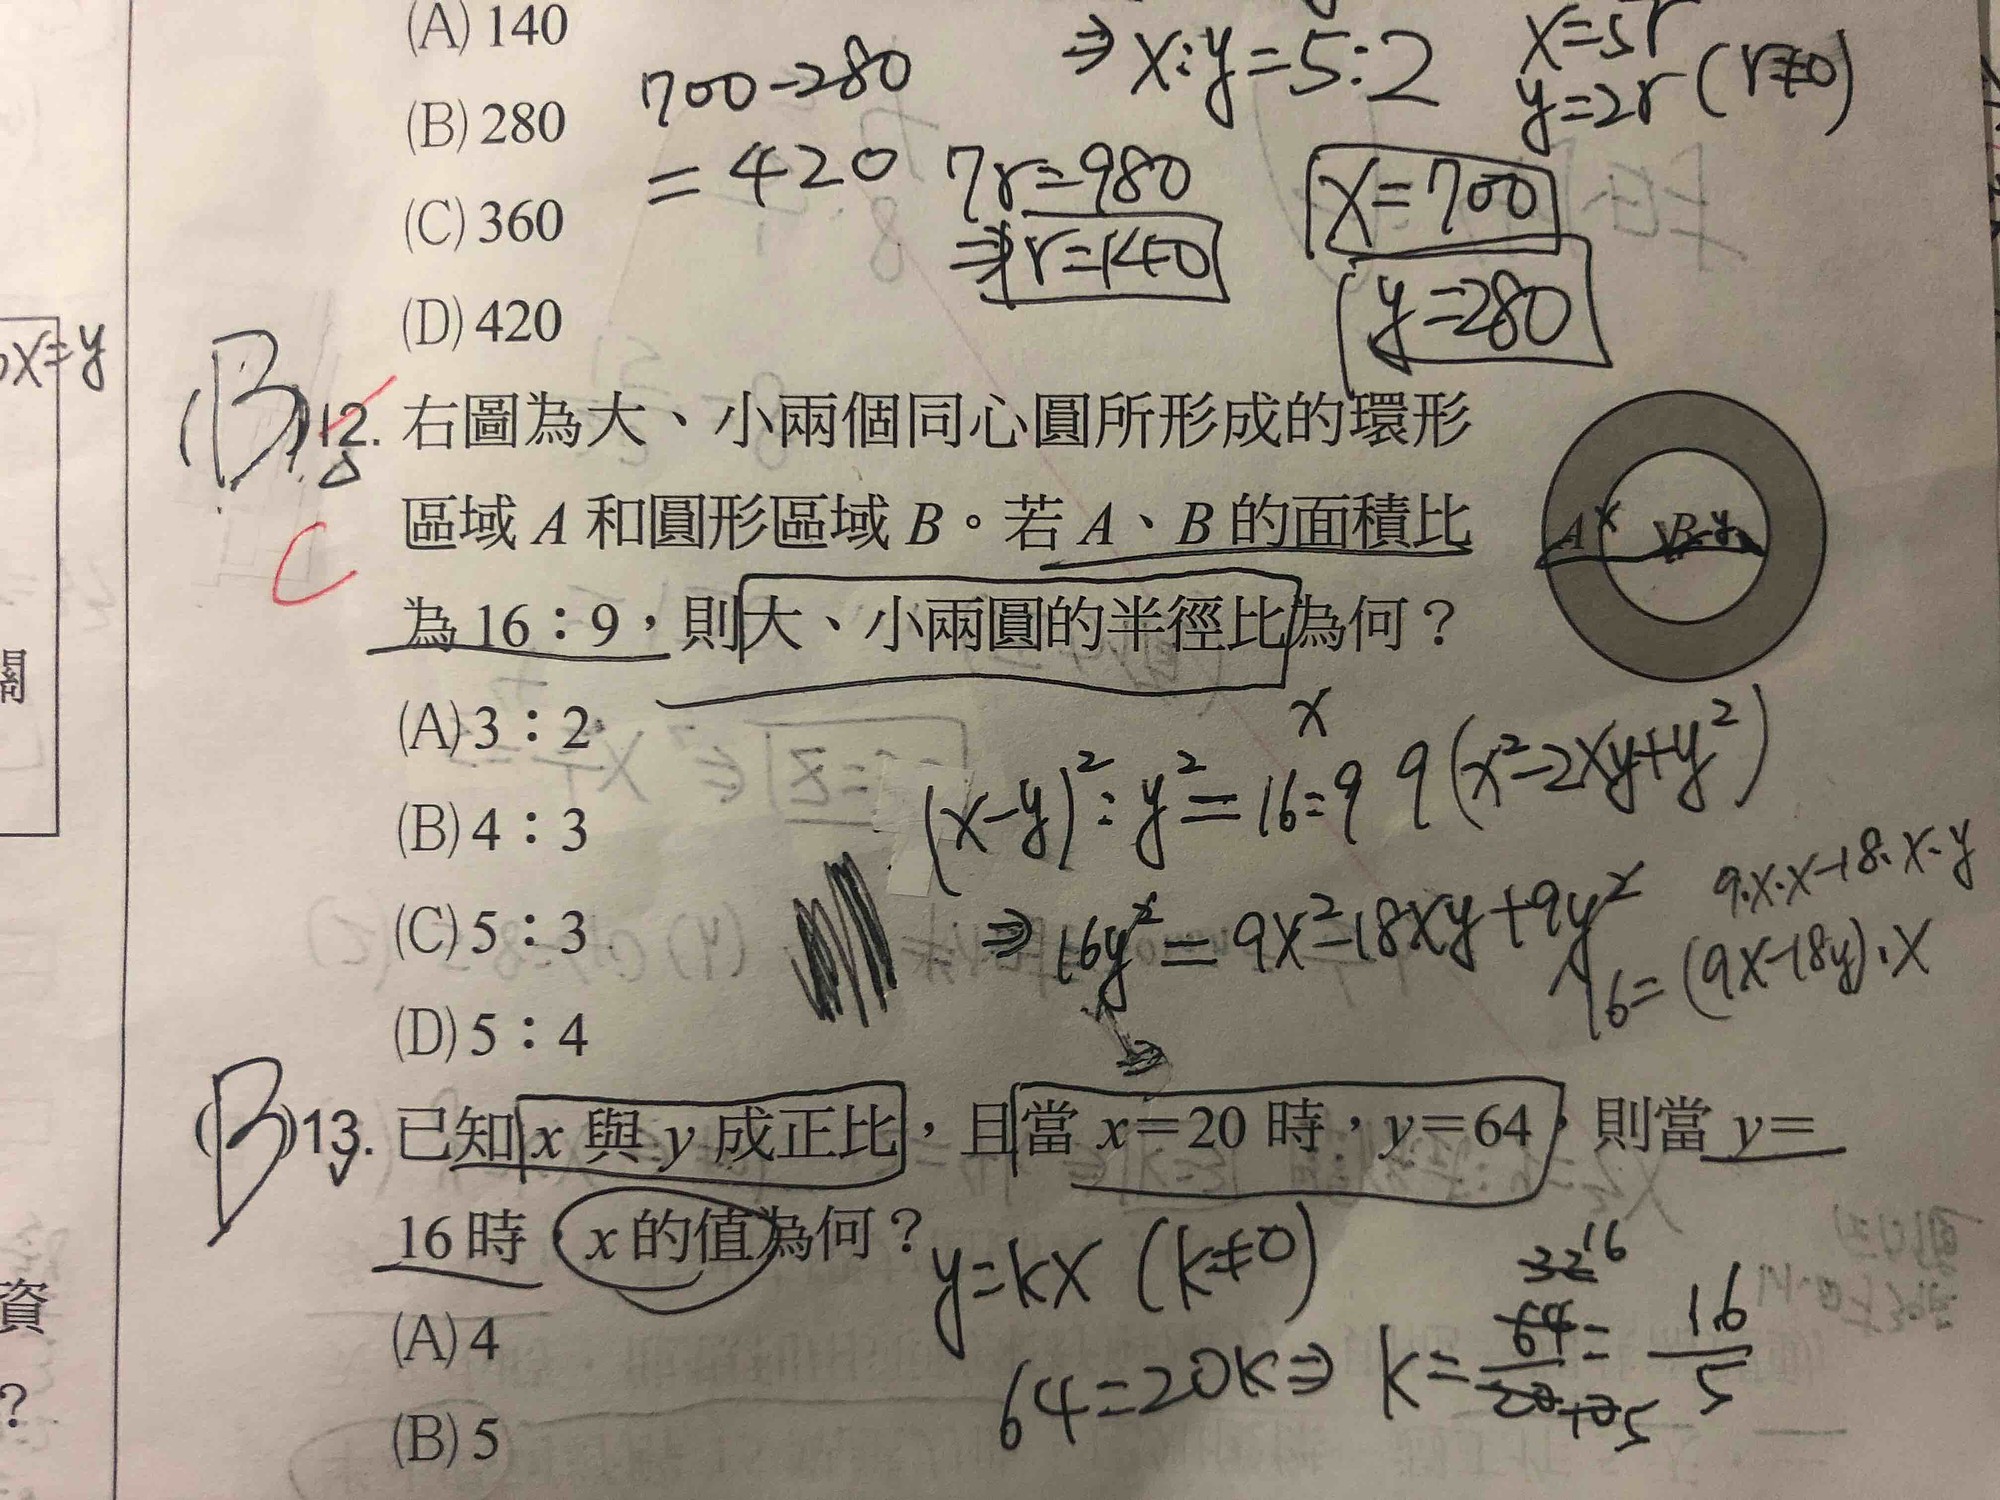 (A) 140
700-280
⇒ x:y=5:2
x=5r
y=2r (r≠0)
(B) 280
=420
7r=980
⇒ r=140
x=700
y=280
(C) 360
(D) 420
x=y
(B)12. 右圖為大、小兩個同心圓所形成的環形
區域 A 和圓形區域 B。若 A、B 的面積比
為 16：9，則大、小兩圓的半徑比為何？
C
A x B y
關
(A) 3：2
(B) 4：3
(C) 5：3
(D) 5：4
x
(x-y)²:y²=16:9
9(x²-2xy+y²)
⇒ 16y²=9x²-18xy+9y²
9·x·x-18·x·y
16=(9x-18y)·x
⇒
(B)13. 已知 x 與 y 成正比，且當 x＝20 時，y＝64，則當 y＝
16 時，x 的值為何？
y=kx (k≠0)
64=20k⇒ k=64/20=16/5
32 16
5
資
？
(A) 4
(B) 5